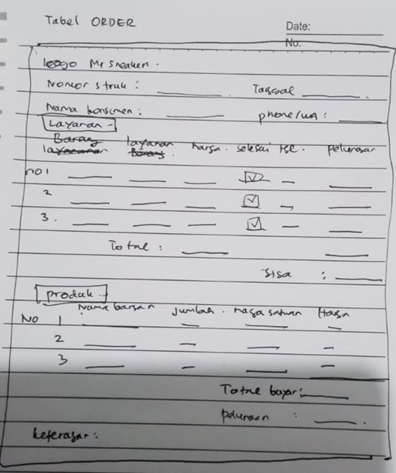 Tabel ORDER
Date:
No.
logo Mr Sneakers.
Nomor struk : Tanggal
Nama konsumen : phone/wa :
Layanan
Barang layanan harga. selesai tgl. pelunasan
layanan Barang.
no 1
2
3.
Total :
sisa :
produk
Nama barang jumlah. harga satuan Harga
NO 1
2
3
Total bayar:
pelunasan :
keterangan :